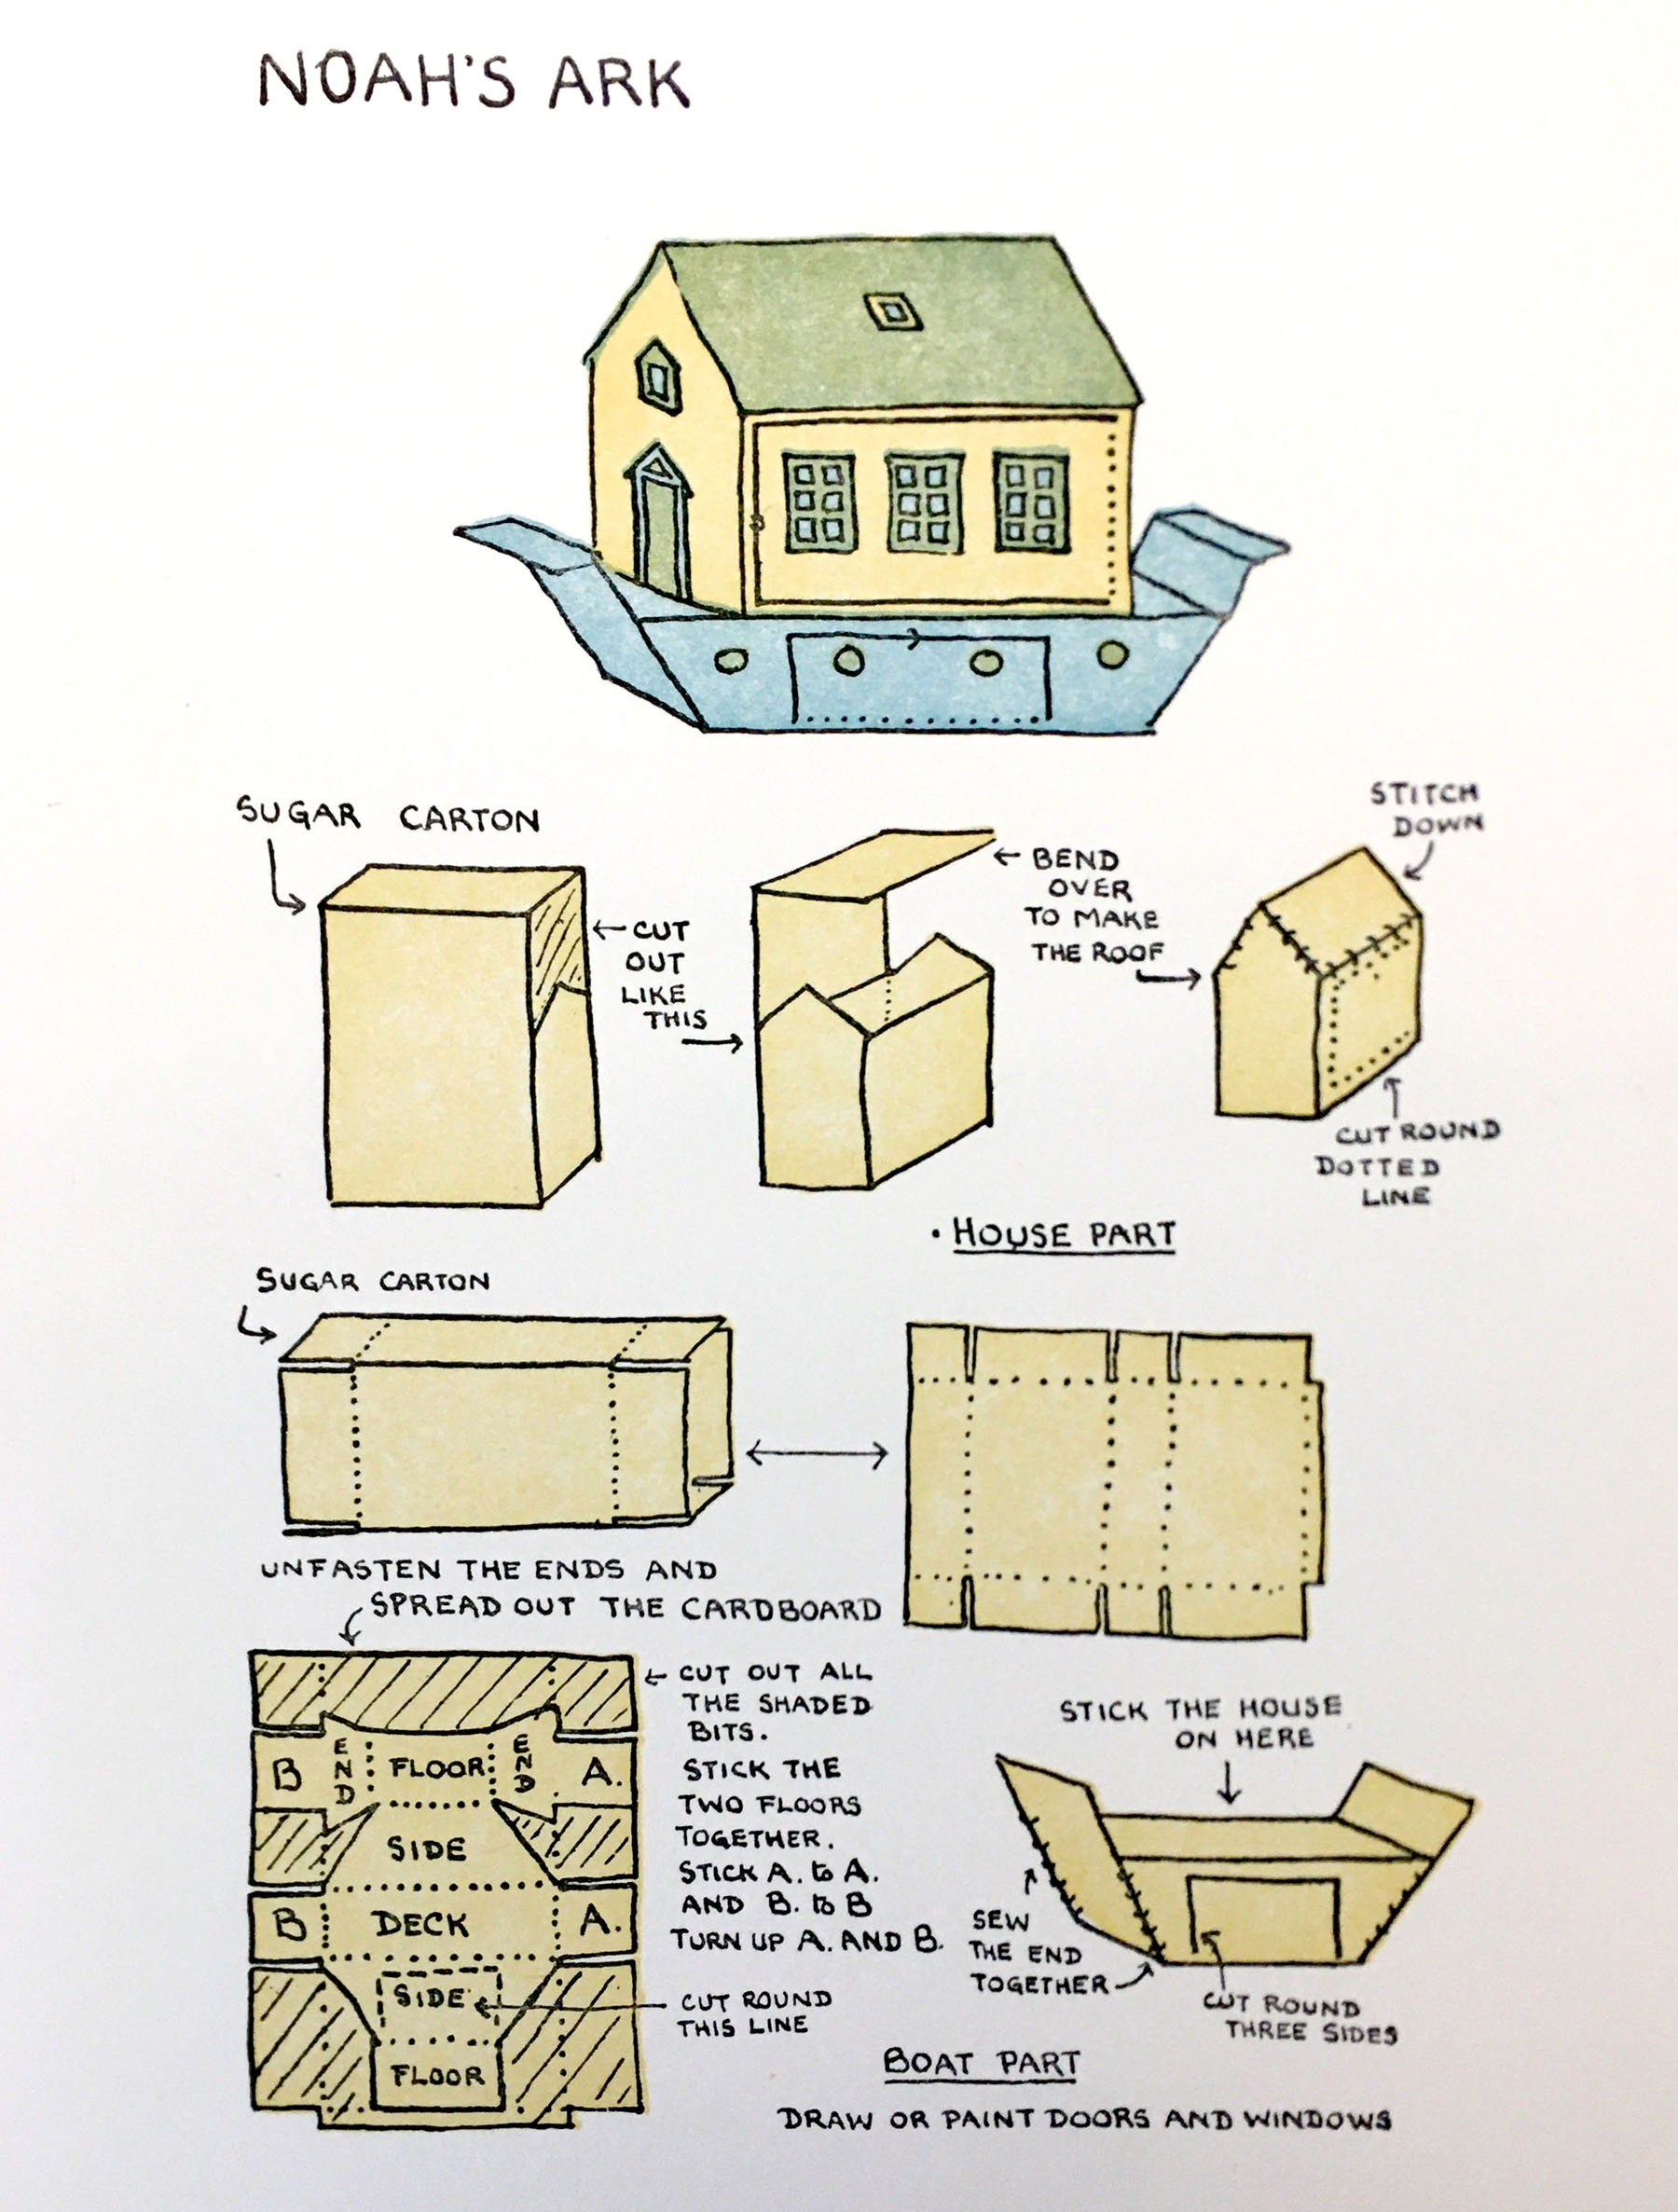 NOAH'S ARK
SUGAR CARTON
←CUT
OUT
LIKE
THIS
← BEND
OVER
TO MAKE
THE ROOF
STITCH
DOWN
CUT ROUND
DOTTED
LINE
• HOUSE PART
SUGAR CARTON
UNFASTEN THE ENDS AND
SPREAD OUT THE CARDBOARD
← CUT OUT ALL
THE SHADED
BITS.
STICK THE
TWO FLOORS
TOGETHER.
STICK A. to A.
AND B. to B
TURN UP A. AND B.
CUT ROUND
THIS LINE
B END FLOOR END A.
SIDE
B DECK A.
SIDE
FLOOR
STICK THE HOUSE
ON HERE
SEW
THE END
TOGETHER
CUT ROUND
THREE SIDES
BOAT PART
DRAW OR PAINT DOORS AND WINDOWS